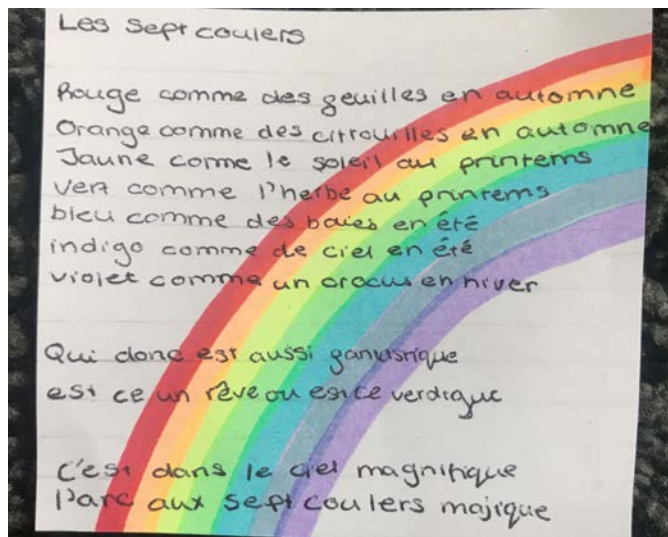 Les sept coulers
Rouge comme des feuilles en automne
Orange comme des citrouilles en automne
Jaune comme le soleil au printems
vert comme l'herbe au printems
bleu comme des baies en été
indigo comme de ciel en été
violet comme un crocus en hiver
Qui donc est aussi fantastique
est ce un rêve ou est ce verdique
c'est dans le ciel magnifique
l'arc aux sept coulers majique